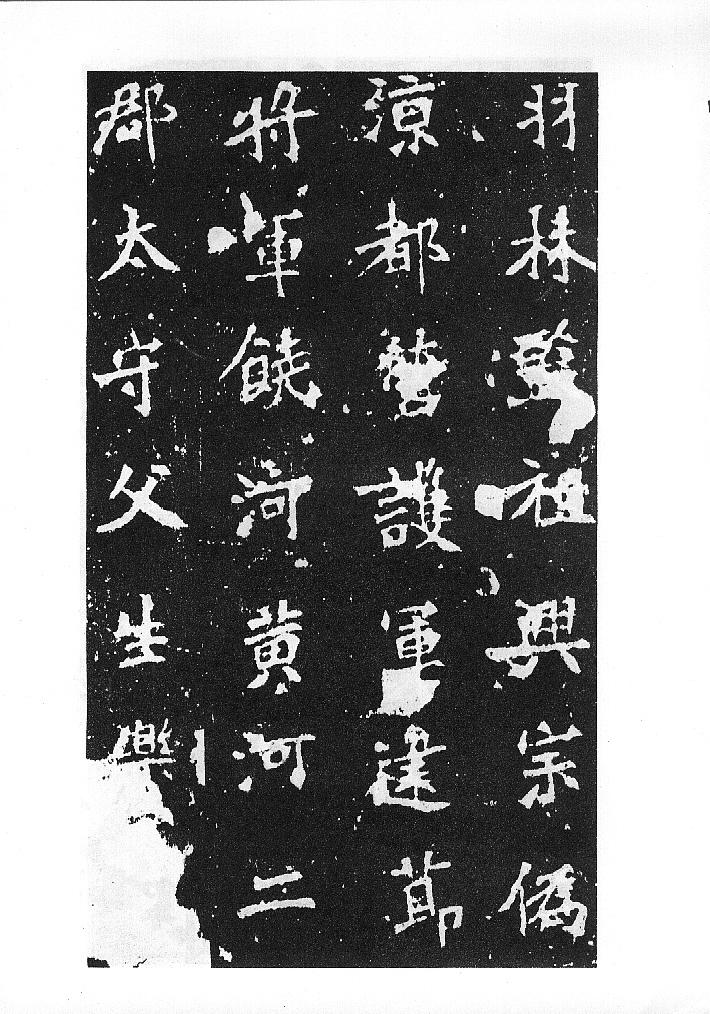 羽林監祖興宗僞
涼都營護軍建節
將軍饒河黃河二
郡太守父生樂